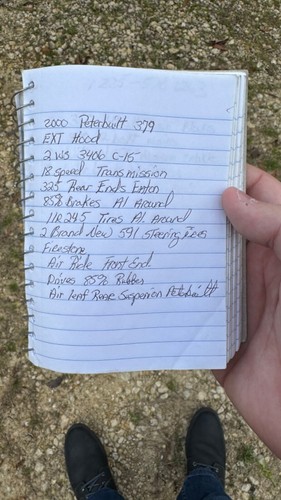 2000 Peterbuilt 379
EXT Hood
2 WS 3406 C-15
18 Speed Transmission
325 Rear Ends Eaton
85% Brakes Al Around
11R 24.5 Tires Al Around
2 Brand New 591 Steering Tires
Firestone
Air Ride Front End.
Drives 85% Rubber
Air leaf Rear Suspenion Peterbuilt